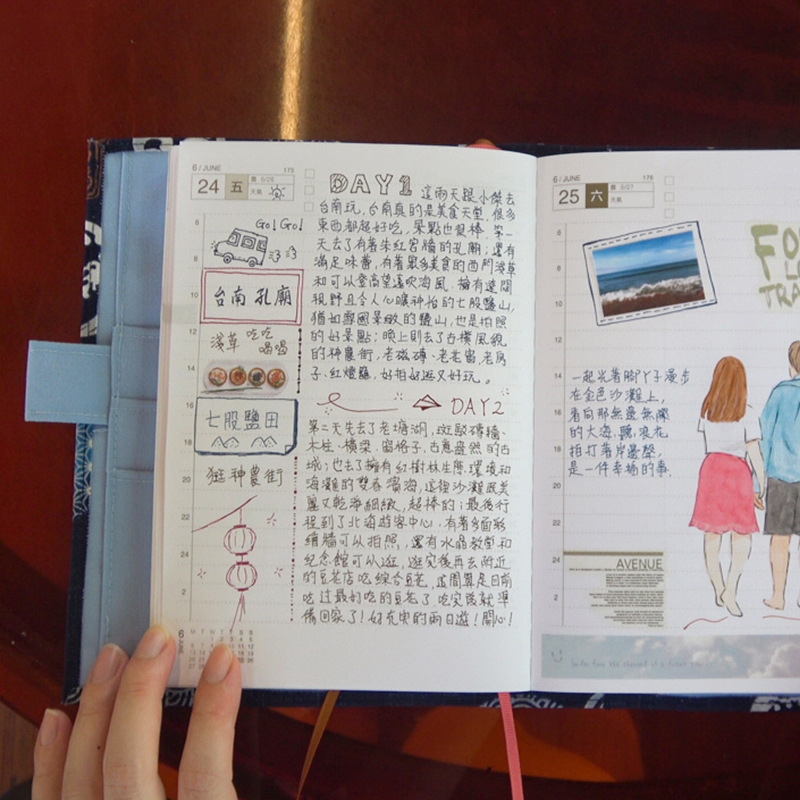 6 / JUNE 175
24 五
天氣
6
8
10
12
14
16
18
20
22
24
2
Go! Go!
台南 孔廟
淺草 吃吃
喝喝
七股鹽田
逛神農街
DAY1 這兩天跟小傑去
台南玩，台南真的是美食天堂，很多
東西都超好吃，景點也很棒。第一
天去了有著朱紅宮牆的孔廟；還有
滿足味蕾，有著眾多美食的西門淺草
和可以登高望遠吹海風，擁有遼闊
視野且令人心曠神怡的七股鹽山，
猶如雪國景緻的鹽山，也是拍照
的好景點；晚上則去了古樸風貌
的神農街，老磁磚、老花窗、老房
子、紅燈籠，好拍好逛又好玩。
DAY2
第二天先去了老塘湖，斑駁磚牆、
木柱、橫梁、窗格子，古意盎然的古
城；也去了擁有紅樹林生態環境和
海灘的雙春濱海，這裡沙灘很美
麗又乾淨細緻，超棒的；最後行
程到了北海遊客中心，有著多面彩
繪牆可以拍照，還有水晶教堂和
紀念館可以逛，逛完後再去附近
的豆花店吃綜合豆花，這間算是目前
吃過最好吃的豆花了，吃完後就準
備回家了！好充實的兩日遊！開心！
6 JUNE
6 / JUNE 176
25 六
天氣
6
8
10
12
14
16
18
20
22
24
2
一起光著腳丫子漫步
在金色沙灘上，
看向那無邊無際
的大海，聽浪花
拍打著岸邊聲，
是一件幸福的事。
AVENUE